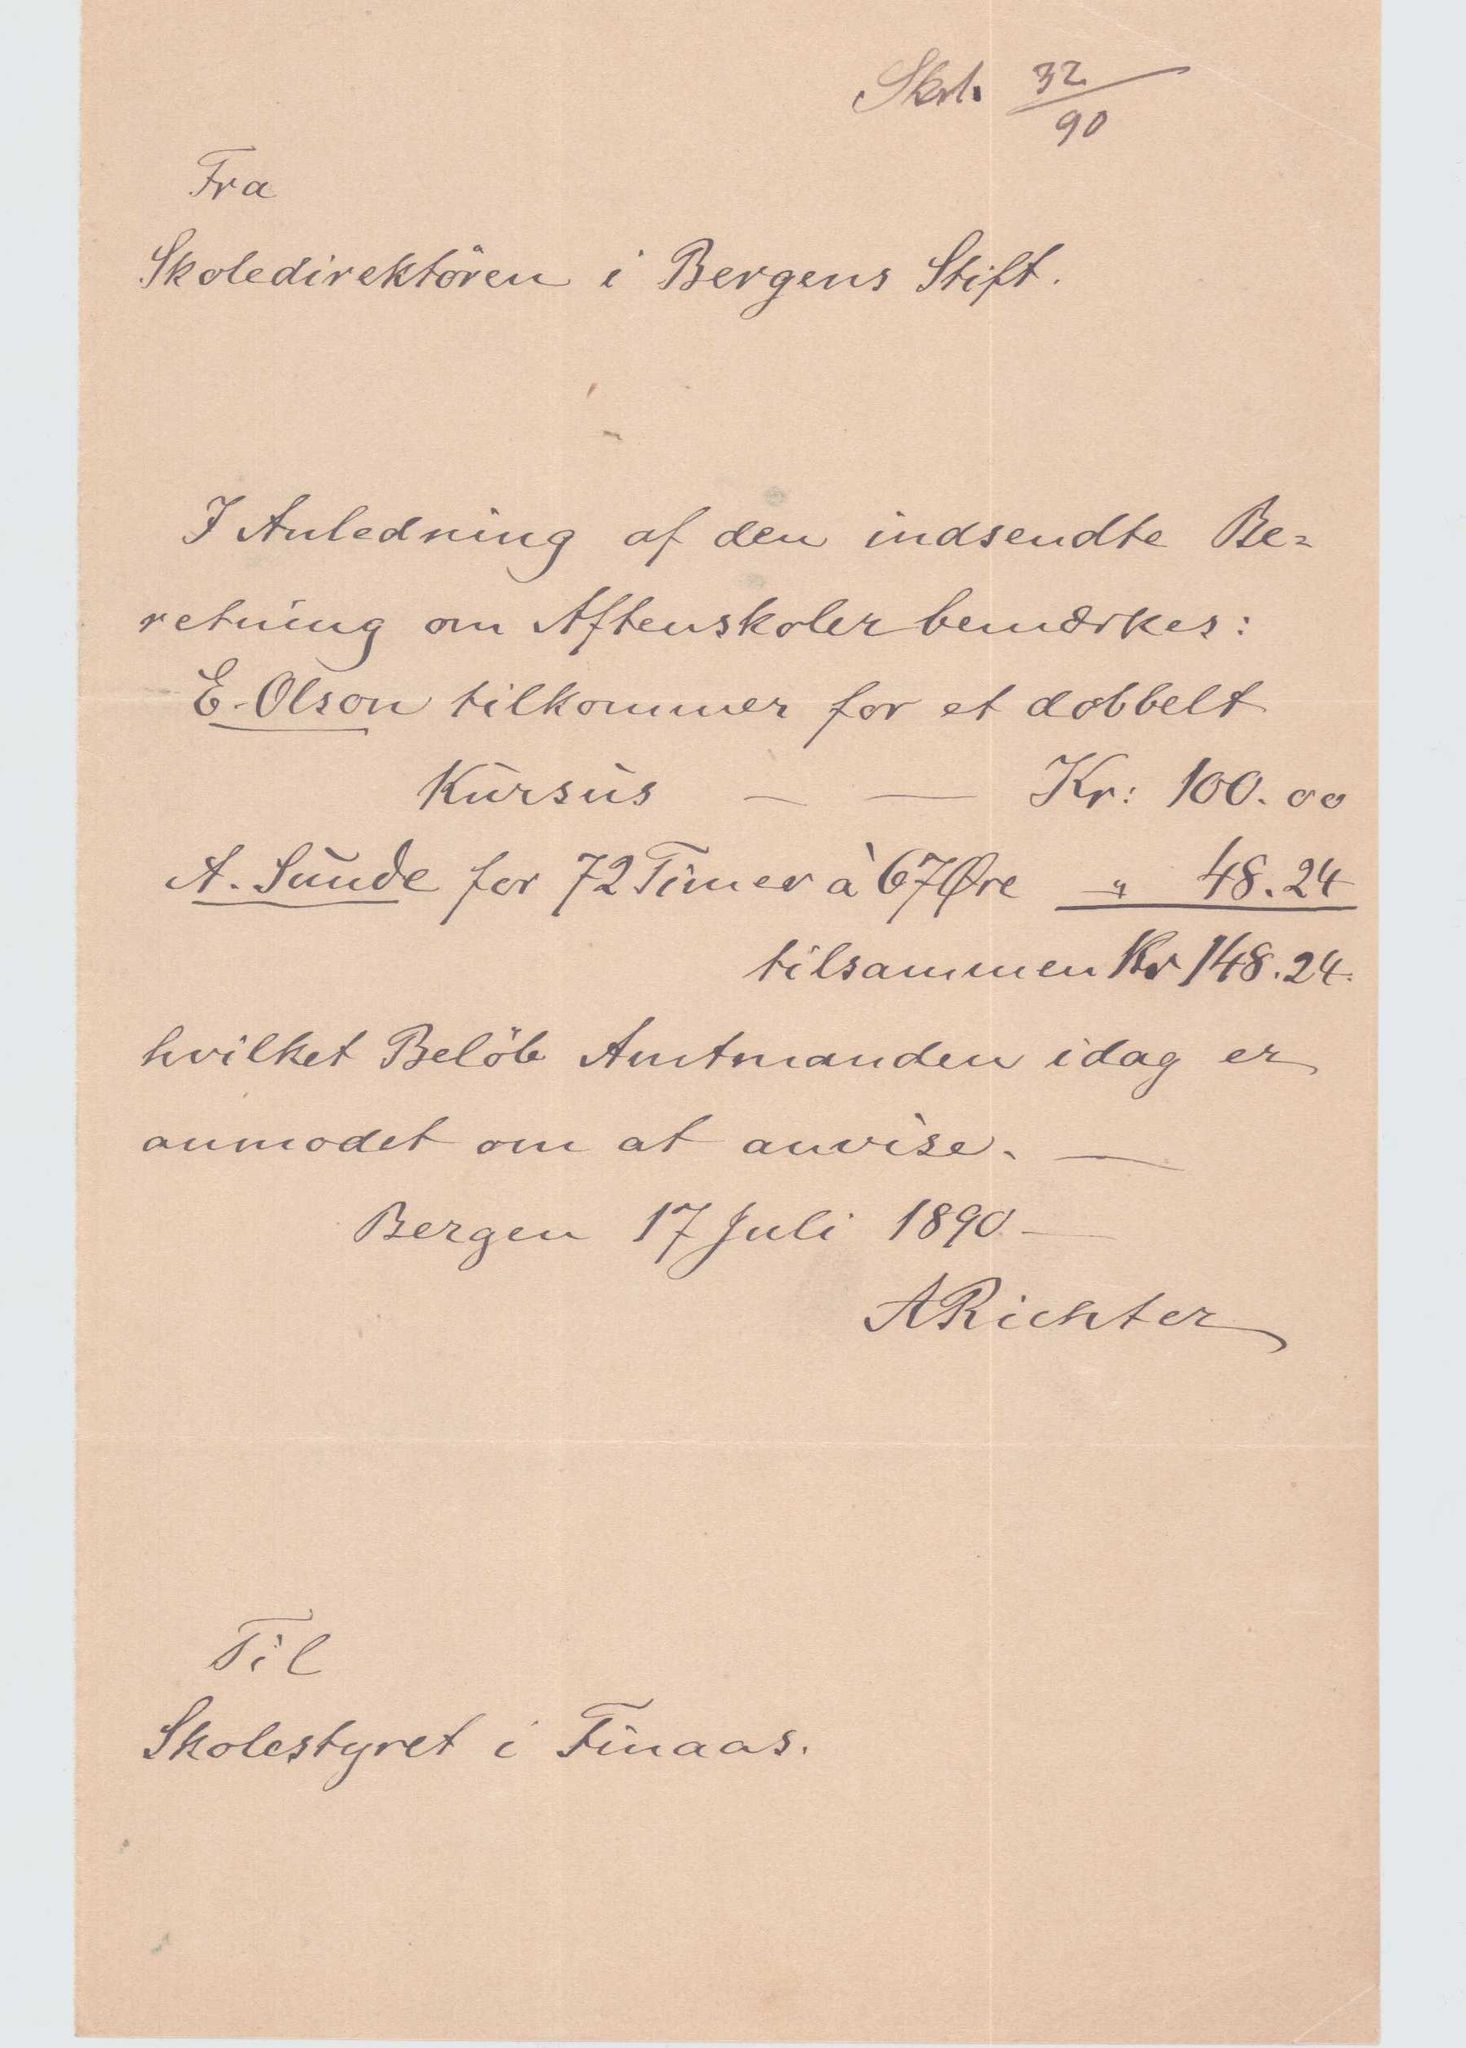 32
90
Fra
Skoledirektören i Bergens Stift.
I Anledning af den indsendte Be=
retning om Aftenskoler bemærkes:
E. Olson tilkommer for et dobbelt
Kursus — — Kr: 100.00
A. Sunde for 72 Timer à 67 Øre " 48.24
tilsammen Kr 148.24.
hvilket Belöb Amtmanden idag er
anmodet om at anvise. —
Bergen 17 Juli 1890 —
ARichter
Til
Skolestyret i Finaas.